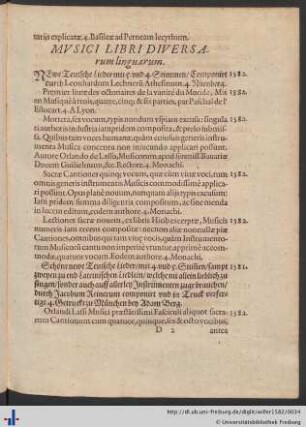 tariis explicatæ. 4. Basileæ ad Perneam lecythum.
MVSICI LIBRI DIVERSA-
rum linguarum.
NEwe Teutsche Lieder mit 5. vnd 4. Stimmen / Componiert 1582.
durch Leonhardum Lechnerum Athesinum. 4. Nürnberg.
Premier liure des octonaires de la vanité du Monde, Mis 1582.
en Musique à trois, quatre, cinq & six parties, par Paschal de l'
Estocart. 4. A Lyon.
Mortetta, sex vocum, typis nondum vspiam excusa: singula 1582.
ri authoris industria iampridem composita, & prelo submis-
sa. Quibus tum viuæ humanæ, quàm cuiusuis generis instru-
menta Musica concentu non iniucundo possunt applicari
Autore Orlando de Lasso, Musicorum apud Serenis. Bauariæ
Ducem Guilielmum, &c. Rectore. 4. Monachi.
Sacræ Cantiones quinq; vocum, quæ cùm viuæ voci, tum
omnis generis instrumentis Musicis commodissimè applicari
possunt. Opus planè nouum, nunquam alijs typis excusum:
Iam pridem summa diligentia compositum, ac nunc demum
in lucem editum, eodem authore. 4. Monachi.
Lectiones sacræ nouem, ex libris Hiob excerptæ, Musicis 1582.
numeris iam recens compositæ: necnon aliæ nonnullæ piæ
Cantiones, omnibus quidem tam viuæ vocis, quàm Instrumento-
rum Musicæ cantu non impetitè vtuntur, apprimè accom-
modæ, quatuor vocum. Eodem authore. 4. Monachi.
Schöne newe Teutsche Lieder / mit 4. vnd 5. Stuffen / sampt 1581.
zweyen zu end Lateinischen Liedlein / welche nit allein lieblich zu
singen / sonder auch auff allerley Instrumenten zugebrauchen /
durch Jacobum Reinerum componiert vnd in Truck verfer-
tigt. 4. Getruckt zu München bey Adam Berg.
Orlandi Lassi Musici præstantissimi Fasciculi aliquot sacra- 1582.
rum Cantionum cum quatuor, quinque, sex & octo vocibus,
D 2
antea
http://dl.ub.uni-freiburg.de/diglit/willer1582/0034
© Universitätsbibliothek Freiburg